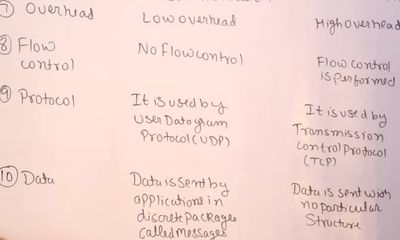 ⑦ Overhead Low overhead High overhead
⑧ Flow control No Flow control Flow control is performed
⑨ Protocol It is used by User Datagram Protocol (UDP) It is used by Transmission control protocol (TCP)
⑩ Data Data is sent by applications in discrete packages called messages Data is sent with no particular structure